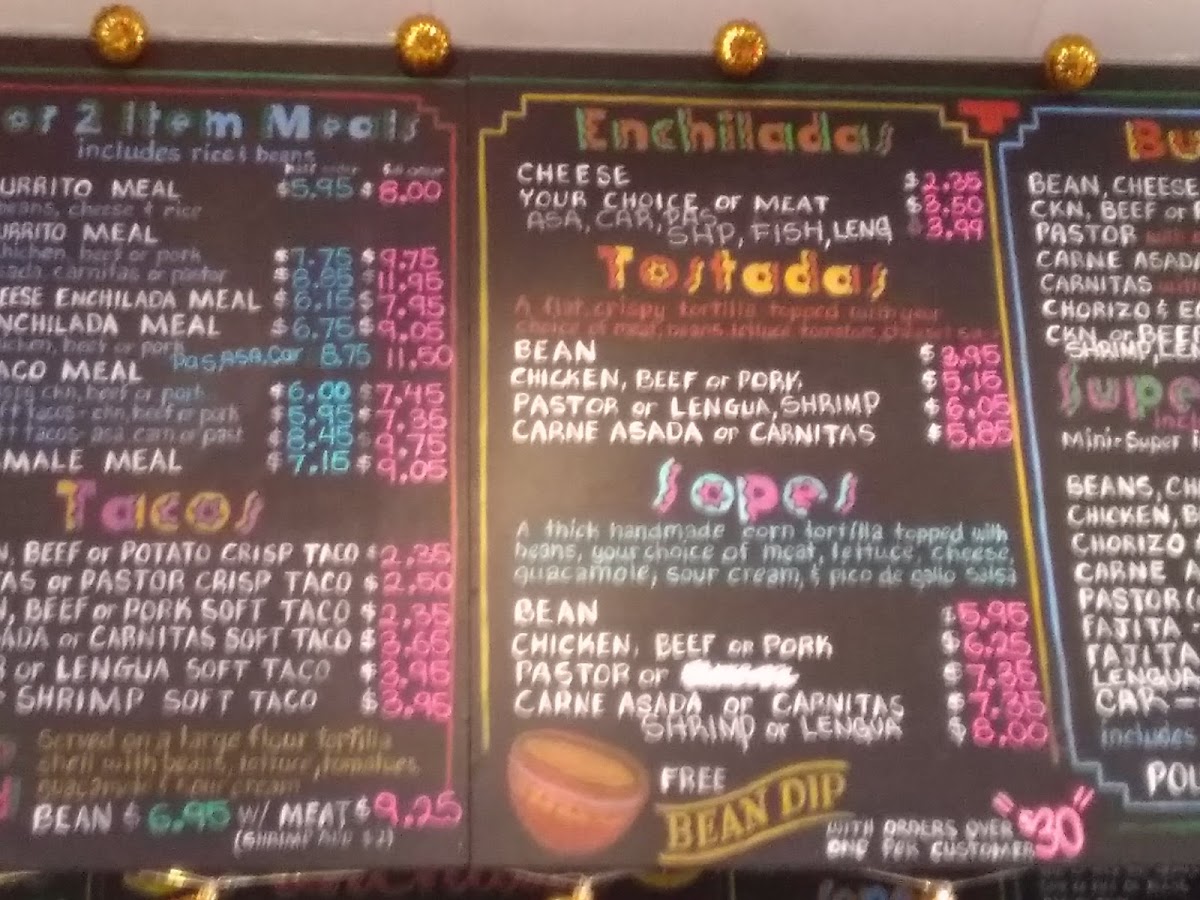 or 2 Item Meals
includes rice & beans
URRITO MEAL $5.95 $8.00
beans, cheese & rice
URRITO MEAL
chicken, beef or pork $7.75 $9.75
sada, carnitas or pastor 11.95
EESE ENCHILADA MEAL $6.15 $7.95
NCHILADA MEAL $6.75 $9.05
chicken, beef or pork Pas, ASA, Car 8.75 11.50
ACO MEAL
ckn, beef or pork $6.00 $7.45
ft tacos - ckn, beef or pork $5.95 $7.35
ft tacos - asa, carn or past $8.45 $9.75
MALE MEAL $7.15 $9.05
Tacos
N, BEEF or POTATO CRISP TACO $2.35
TAS or PASTOR CRISP TACO $2.50
N, BEEF or PORK SOFT TACO $2.35
ADA or CARNITAS SOFT TACO $3.65
R or LENGUA SOFT TACO $3.95
SHRIMP SOFT TACO $3.95
Served on a large flour tortilla
shell with beans, lettuce, tomatoes,
guacamole & sour cream
BEAN $6.95 W/ MEAT $9.25
(SHRIMP ADD $2)
Enchiladas
CHEESE $2.35
YOUR CHOICE OF MEAT $3.50
ASA, CAR, PAS,
SHP, FISH, LENG 3.99
Tostadas
A flat, crispy tortilla topped with your
choice of meat, beans, lettuce, tomatoes, cheese &
BEAN $3.95
CHICKEN, BEEF or PORK $5.15
PASTOR or LENGUA, SHRIMP $6.05
CARNE ASADA or CARNITAS $5.85
Sopes
A thick handmade corn tortilla topped with
beans, your choice of meat, lettuce, cheese,
guacamole, sour cream, & pico de gallo salsa
BEAN $5.95
CHICKEN, BEEF OR PORK $6.25
PASTOR or $7.35
CARNE ASADA or CARNITAS $7.35
SHRIMP or LENGUA $8.00
FREE
BEAN DIP
WITH ORDERS OVER "$30"
ONE PER CUSTOMER
Bu
BEAN, CHEESE
CKN, BEEF or
PASTOR
CARNE ASADA
CARNITAS
CHORIZO & EG
CKN or BEEF
SHRIMP, LEN
Supe
incl
Mini-Super
BEANS, CH
CHICKEN, B
CHORIZO
CARNE A
PASTOR
FAJITA
FAJITA
LENGUA
CAR-
includes
POL